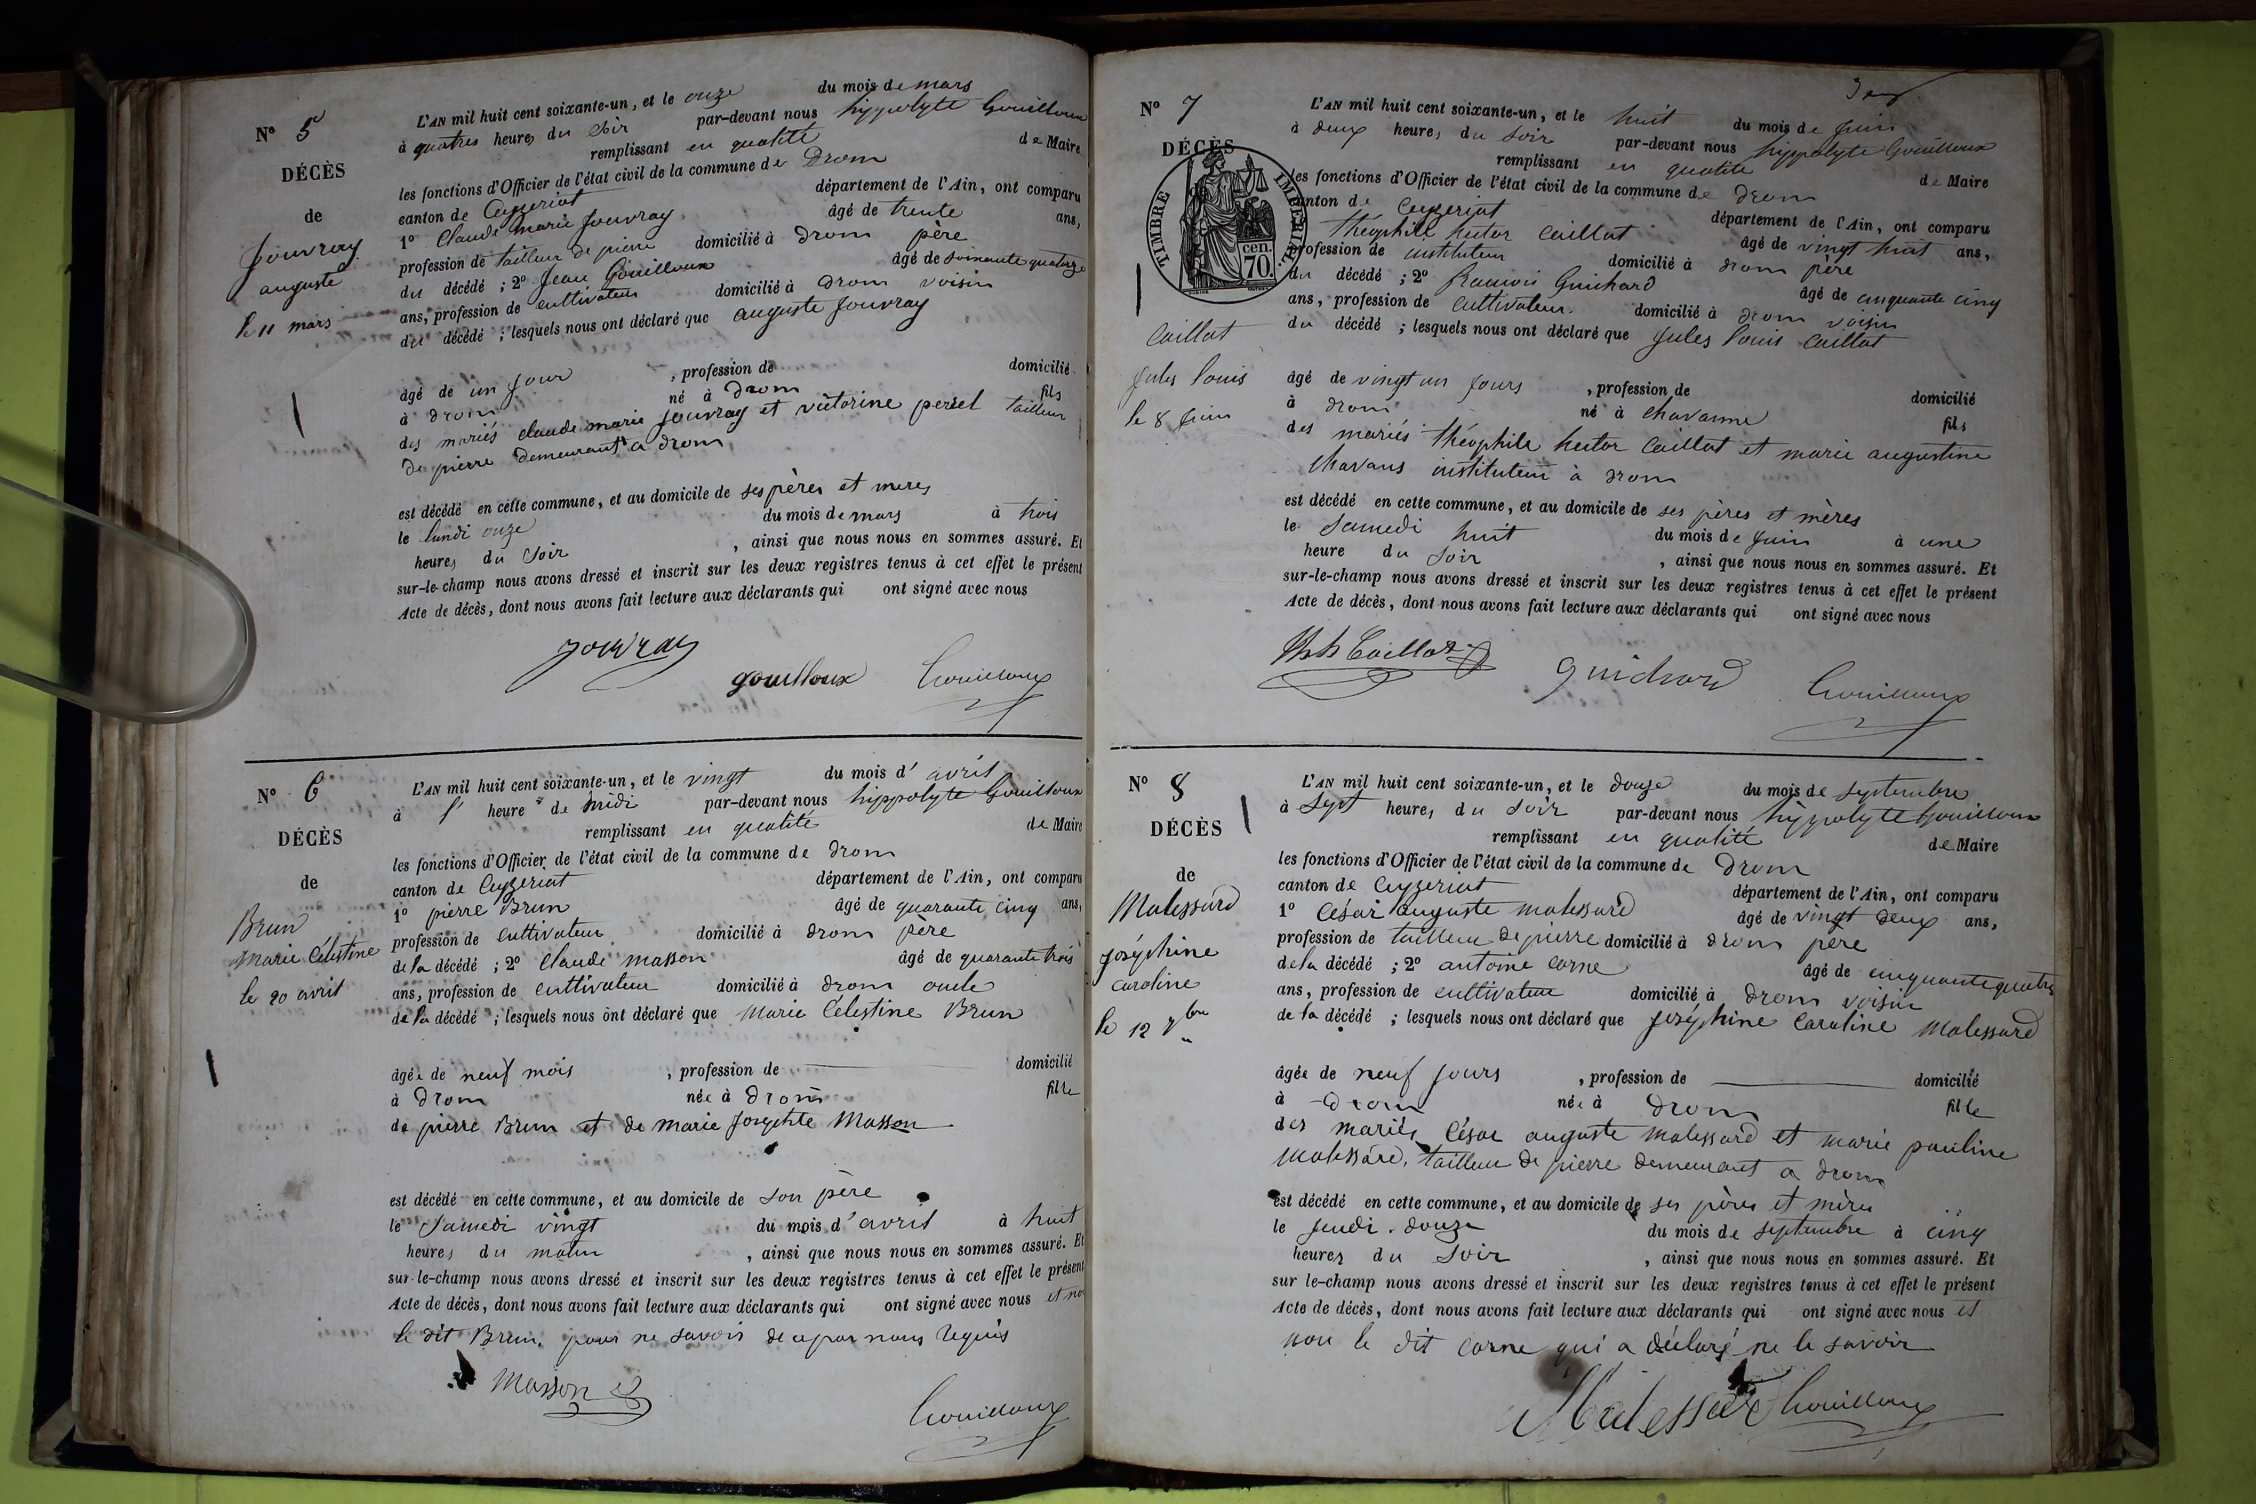 N° 5
DÉCÈS
de
Jouvray
auguste
le 11 mars
L'AN mil huit cent soixante-un, et le onze du mois de mars
à quatres heures du soir par-devant nous hyppolyte Gouilloux
remplissant en qualité de Maire
les fonctions d'Officier de l'état civil de la commune de Drom
canton de Ceyzeriat département de l'Ain, ont comparu
1° Claude Marie Jouvray âgé de trente ans,
profession de tailleur de pierre domicilié à drom père
du décédé ; 2° Jean Gouilloux âgé de soixante quatorze
ans, profession de cultivateur domicilié à drom voisin
du décédé ; lesquels nous ont déclaré que auguste Jouvray
âgé de un jour , profession de domicilié
à drom né à drom fils
des mariés claude marie Jouvray et victorine perret tailleur
de pierre demeurant a drom
est décédé en cette commune, et au domicile de ses pères et meres
le lundi onze du mois de mars à trois
heures du soir , ainsi que nous nous en sommes assuré. Et
sur-le-champ nous avons dressé et inscrit sur les deux registres tenus à cet effet le présent
Acte de décès, dont nous avons fait lecture aux déclarants qui ont signé avec nous
Jouvray
gouilloux Gouilloux
N° 6
DÉCÈS
de
Brun
Marie Célestine
le 20 avril
L'AN mil huit cent soixante-un, et le vingt du mois d' avril
à l' heure de midi par-devant nous hippolyte Gouilloux
remplissant en qualité de Maire
les fonctions d'Officier de l'état civil de la commune de drom
canton de Ceyzeriat département de l'Ain, ont comparu
1° pierre Brun âgé de quarante cinq ans,
profession de cultivateur domicilié à drom père
de la décédé ; 2° Claude masson âgé de quarante trois
ans, profession de cultivateur domicilié à drom oncle
de la décédé ; lesquels nous ont déclaré que Marie Célestine Brun
âgée de neuf mois , profession de domicilié
à drom née à drom fille
de pierre Brun et de marie Josephte Masson
est décédé en cette commune, et au domicile de son père
le Samedi vingt du mois d'avril à huit
heures du matin , ainsi que nous nous en sommes assuré. Et
sur-le-champ nous avons dressé et inscrit sur les deux registres tenus à cet effet le présent
Acte de décès, dont nous avons fait lecture aux déclarants qui ont signé avec nous et non
le dit Brun pour ne savoir de ce par nous requis
Masson
Gouilloux
N° 7
DÉCÈS
TIMBRE IMPERIAL
70 cen.
Caillat
Jules Louis
le 8 Juin
L'AN mil huit cent soixante-un, et le huit du mois de Juin
à deux heures du soir par-devant nous hippolyte Gouilloux
remplissant en qualité de Maire
les fonctions d'Officier de l'état civil de la commune de drom
canton de Ceyzeriat département de l'Ain, ont comparu
théophile hector Caillat âgé de vingt huit ans,
profession de instituteur domicilié à drom père
du décédé ; 2° françois Guichard âgé de cinquante cinq
ans, profession de cultivateur domicilié à drom voisin
du décédé ; lesquels nous ont déclaré que Jules Louis Caillat
âgé de vingt un jours , profession de domicilié
à drom né à chavanne fils
des mariés théophile hector Caillat et marie augustine
chavans instituteur à drom
est décédé en cette commune, et au domicile de ses pères et mères
le Samedi huit du mois de Juin à une
heure du soir , ainsi que nous nous en sommes assuré. Et
sur-le-champ nous avons dressé et inscrit sur les deux registres tenus à cet effet le présent
Acte de décès, dont nous avons fait lecture aux déclarants qui ont signé avec nous
Th h Caillat
guichard Gouilloux
N° 8
DÉCÈS
de
Malessard
joséphine
caroline
le 12 7bre
L'AN mil huit cent soixante-un, et le douze du mois de septembre
à sept heures du soir par-devant nous hippolyte Gouilloux
remplissant en qualité de Maire
les fonctions d'Officier de l'état civil de la commune de Drom
canton de Ceyzeriat département de l'Ain, ont comparu
1° César auguste malessard âgé de vingt deux ans,
profession de tailleur de pierre domicilié à drom père
de la décédé ; 2° antoine corne âgé de cinquante quatre
ans, profession de cultivateur domicilié à drom voisin
de la décédé ; lesquels nous ont déclaré que joséphine Caroline Malessard
âgée de neuf jours , profession de domicilié
à Drom née à Drom fille
des mariés César auguste malessard et marie pauline
malessard, tailleur de pierre demeurant a drom
est décédé en cette commune, et au domicile de ses pères et mères
le Jeudi douze du mois de septembre à cinq
heures du soir , ainsi que nous nous en sommes assuré. Et
sur le-champ nous avons dressé et inscrit sur les deux registres tenus à cet effet le présent
Acte de décès, dont nous avons fait lecture aux déclarants qui ont signé avec nous et
non le dit corne qui a déclaré ne le savoir
Malessard Gouilloux